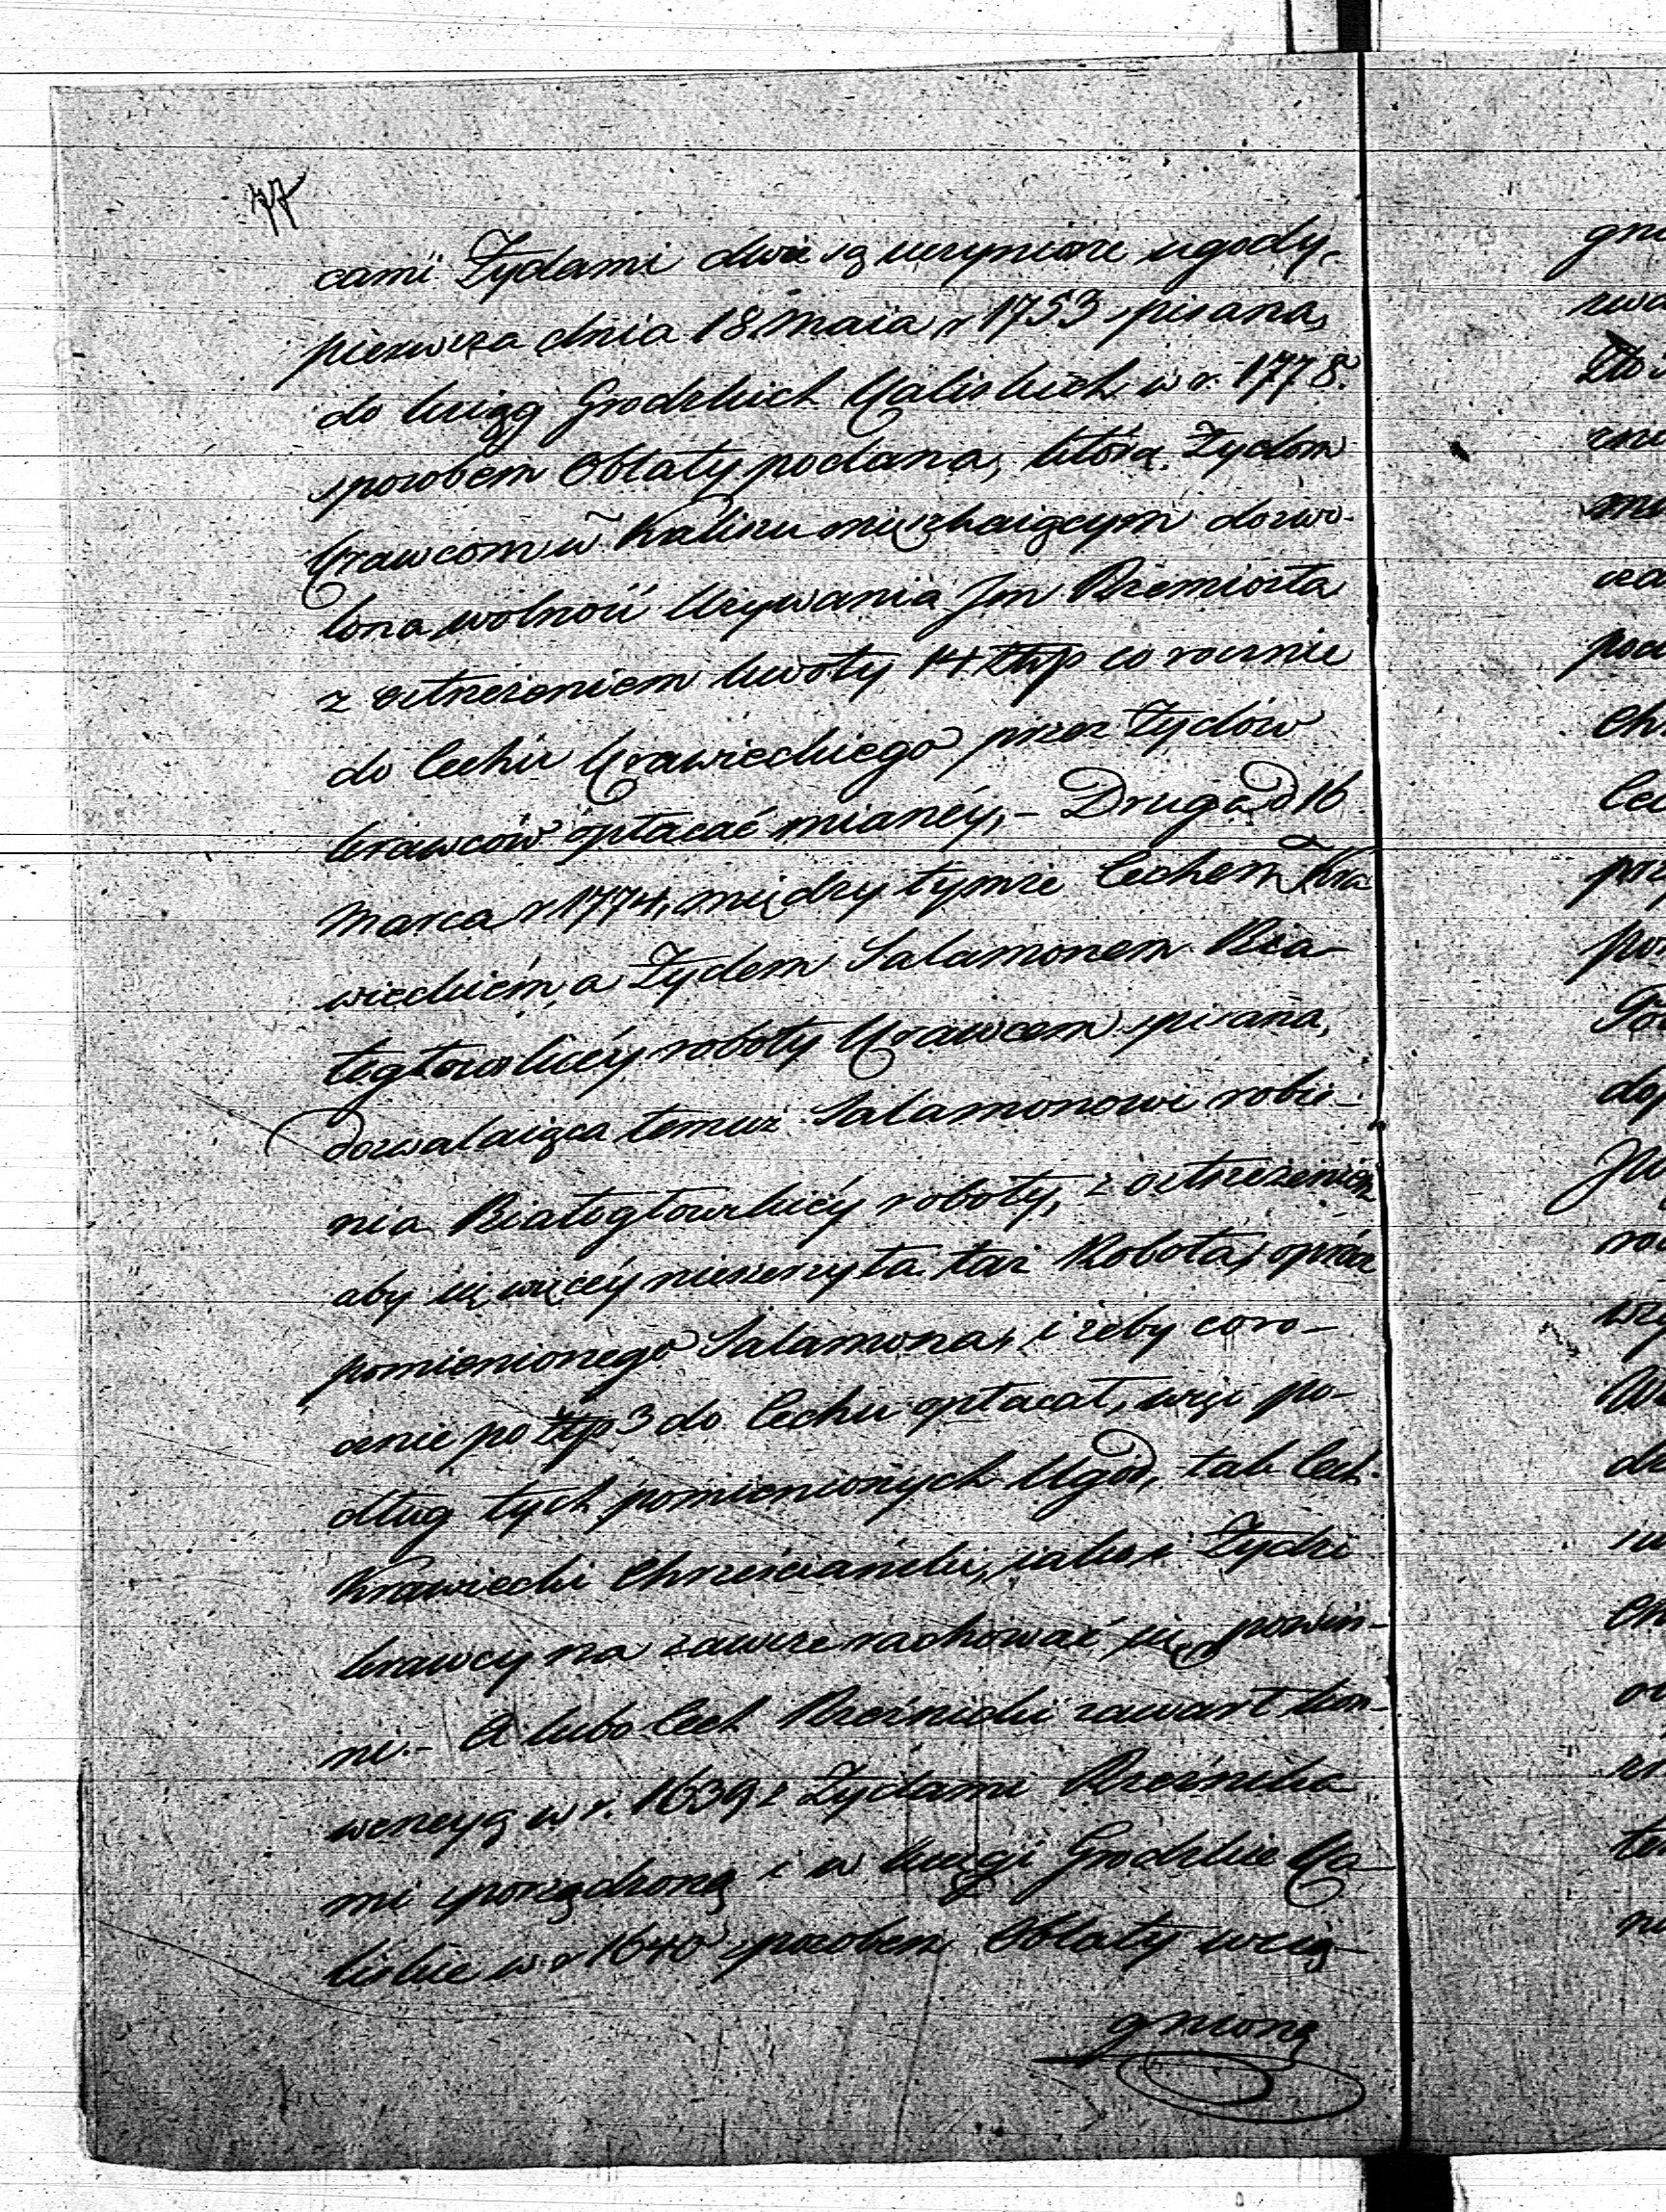 77
cami Żydami dwie są uczynione ugody,
pierwsza dnia 18. Maia r 1753 spisana,
do ksiąg Grodzkich Kaliskich w r. 1778.
sposobem Oblaty podana, która Żydom
Krawcom w Kaliszu mieszkaiącym dozwo-
lona wolność Używania Jm Rzemiosła
z ostrzeżeniem kwoty 14 złtp co rocznie
do Cechu Krawieckiego przez Żydów
krawców opłacać mianéy, - Druga d 16
Marca r 1774, między tymże Cechem Kra
wieckiém, a Żydem Salamonem Bia-
łogłowskiéy roboty Krawcem spisana,
dozwalaiąca temuż Salamonowi robie-
nia Białogłowskiéy roboty, z ostrzeżeniem
aby się więcéy nieszerzyła taż Robota, oprócz
pomienionego Salamona, i żeby coro-
cznie po złtp 3 do Cechu opłacał, więc po-
dług tych pomienionych Ugód, tak Cech
Krawiecki Chrześciański, iako i Żydzi
krawcy na zawsze rachować się powin-
ni. - A lubo Cech Rzeźnicki zawarł kon-
wencyą w r. 1639 z Żydami Rzeźnika
mi sporządzoną i w księgi Grodzkie Ka-
liskie w r 1640 sposobem Oblaty wcią-
gnioną
gni
pod
Cec
prz
dop